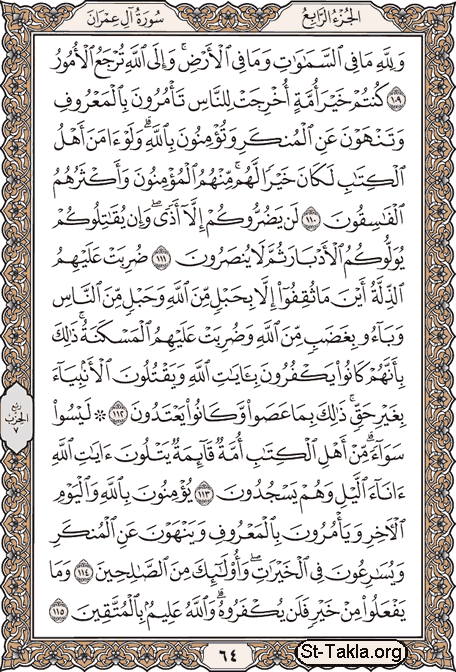 سُورَةُ آلِ عِمْرَانَ
الجُزْءُ الرَّابِعُ
وَلِلَّهِ مَا فِي ٱلسَّمَٰوَٰتِ وَمَا فِي ٱلْأَرْضِۚ وَإِلَى ٱللَّهِ تُرْجَعُ ٱلْأُمُورُ
١٠٩ كُنتُمْ خَيْرَ أُمَّةٍ أُخْرِجَتْ لِلنَّاسِ تَأْمُرُونَ بِٱلْمَعْرُوفِ
وَتَنْهَوْنَ عَنِ ٱلْمُنكَرِ وَتُؤْمِنُونَ بِٱللَّهِۗ وَلَوْ ءَامَنَ أَهْلُ
ٱلْكِتَٰبِ لَكَانَ خَيْرًا لَّهُمۚ مِّنْهُمُ ٱلْمُؤْمِنُونَ وَأَكْثَرُهُمُ
ٱلْفَٰسِقُونَ ١١٠ لَن يَضُرُّوكُمْ إِلَّآ أَذًىۖ وَإِن يُقَٰتِلُوكُمْ
يُوَلُّوكُمُ ٱلْأَدْبَارَ ثُمَّ لَا يُنصَرُونَ ١١١ ضُرِبَتْ عَلَيْهِمُ
ٱلذِّلَّةُ أَيْنَ مَا ثُقِفُوٓا۟ إِلَّا بِحَبْلٍ مِّنَ ٱللَّهِ وَحَبْلٍ مِّنَ ٱلنَّاسِ
وَبَآءُو بِغَضَبٍ مِّنَ ٱللَّهِ وَضُرِبَتْ عَلَيْهِمُ ٱلْمَسْكَنَةُۚ ذَٰلِكَ
بِأَنَّهُمْ كَانُوا۟ يَكْفُرُونَ بِـَٔايَٰتِ ٱللَّهِ وَيَقْتُلُونَ ٱلْأَنۢبِيَآءَ
بِغَيْرِ حَقٍّۚ ذَٰلِكَ بِمَا عَصَوا۟ وَّكَانُوا۟ يَعْتَدُونَ ١١٢ ۞ لَيْسُوا۟
سَوَآءًۗ مِّنْ أَهْلِ ٱلْكِتَٰبِ أُمَّةٌ قَآئِمَةٌ يَتْلُونَ ءَايَٰتِ ٱللَّهِ
ءَانَآءَ ٱلَّيْلِ وَهُمْ يَسْجُدُونَ ١١٣ يُؤْمِنُونَ بِٱللَّهِ وَٱلْيَوْمِ
ٱلْءَاخِرِ وَيَأْمُرُونَ بِٱلْمَعْرُوفِ وَيَنْهَوْنَ عَنِ ٱلْمُنكَرِ
وَيُسَٰرِعُونَ فِي ٱلْخَيْرَٰتِۖ وَأُو۟لَٰٓئِكَ مِنَ ٱلصَّٰلِحِينَ ١١٤ وَمَا
يَفْعَلُوا۟ مِنْ خَيْرٍ فَلَن يُكْفَرُوهُۗ وَٱللَّهُ عَلِيمٌۢ بِٱلْمُتَّقِينَ ١١٥
ربع
الحزب
٧
٦٤
St-Takla.org